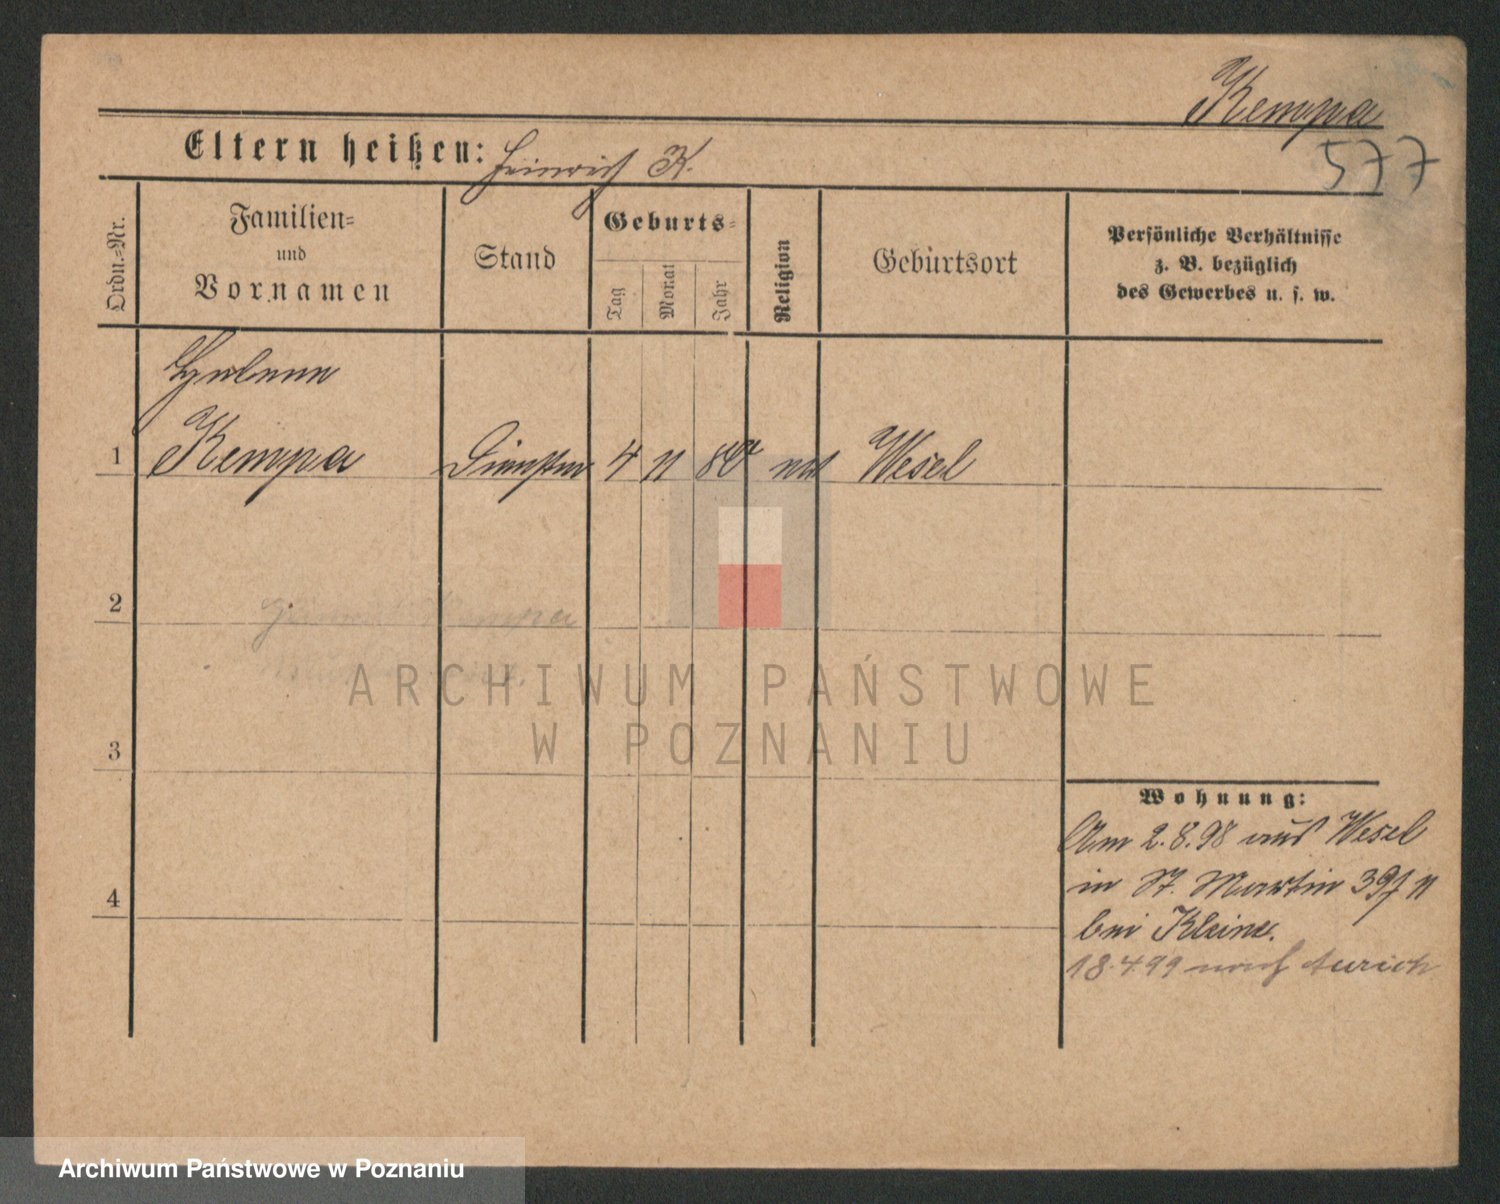 Kempa
577
Eltern heißen: Heinrich K.
Ordn.=Nr.
Familien=
und
Vornamen
Stand
Geburts=
Tag
Monat
Jahr
Religion
Geburtsort
Persönliche Verhältnisse
z. B. bezüglich
des Gewerbes u. s. w.
1
Kempa 4 11 80 Wesel
2
Kempa
3
4
Wohnung:
Am 2.8.98 aus Wesel
in St. Martin 39 II
bei Kleine.
18.4.99 nach Aurich
ARCHIWUM PAŃSTWOWE
W POZNANIU
Archiwum Państwowe w Poznaniu